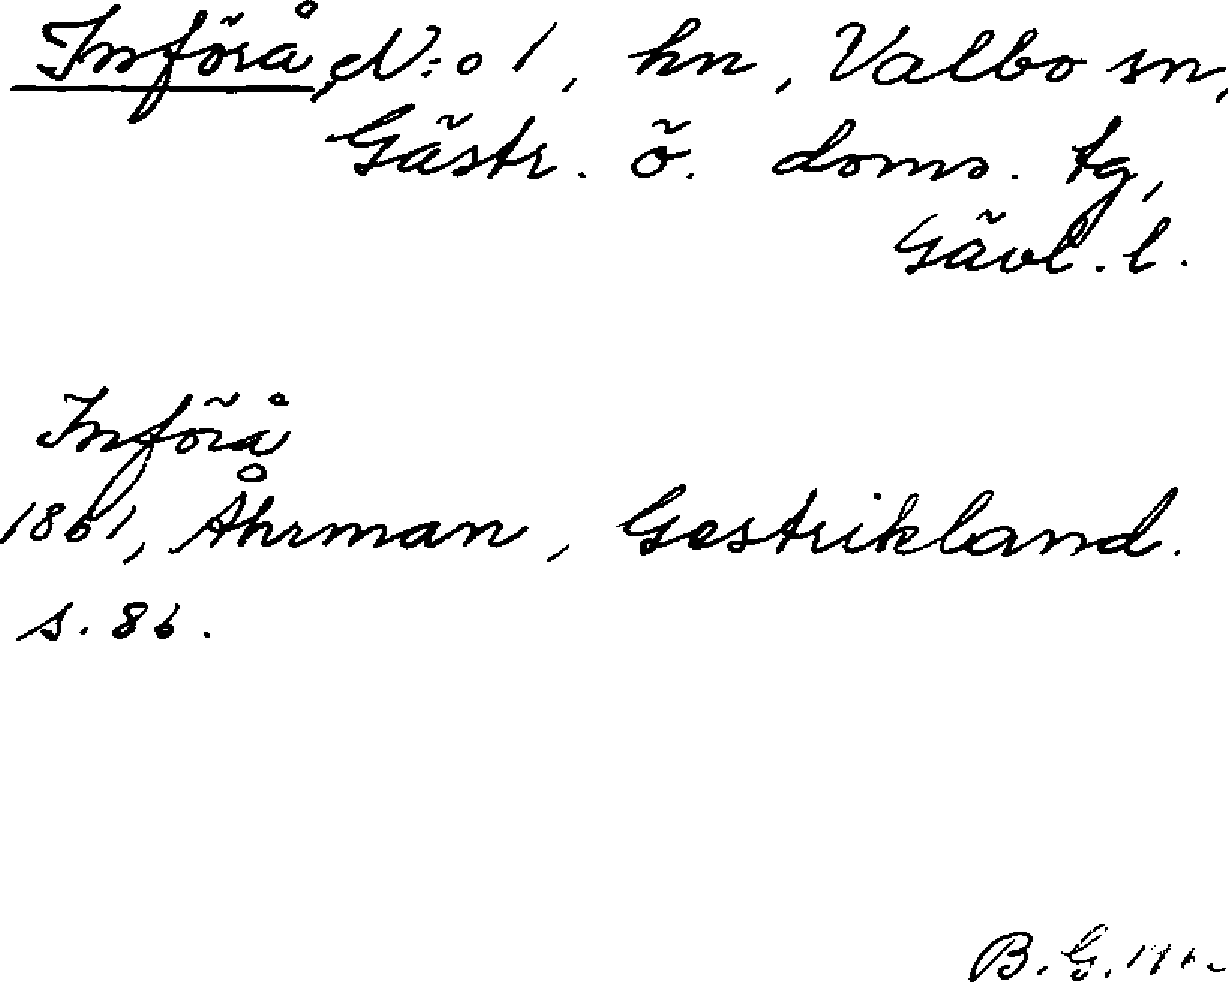 Införå, N:o 1, hn, Valbo sn,
Gästr. ö. doms. tg,
Gävl. l.
Införå
1861, Åhrman, Gestrikland.
s. 86.
B. G.